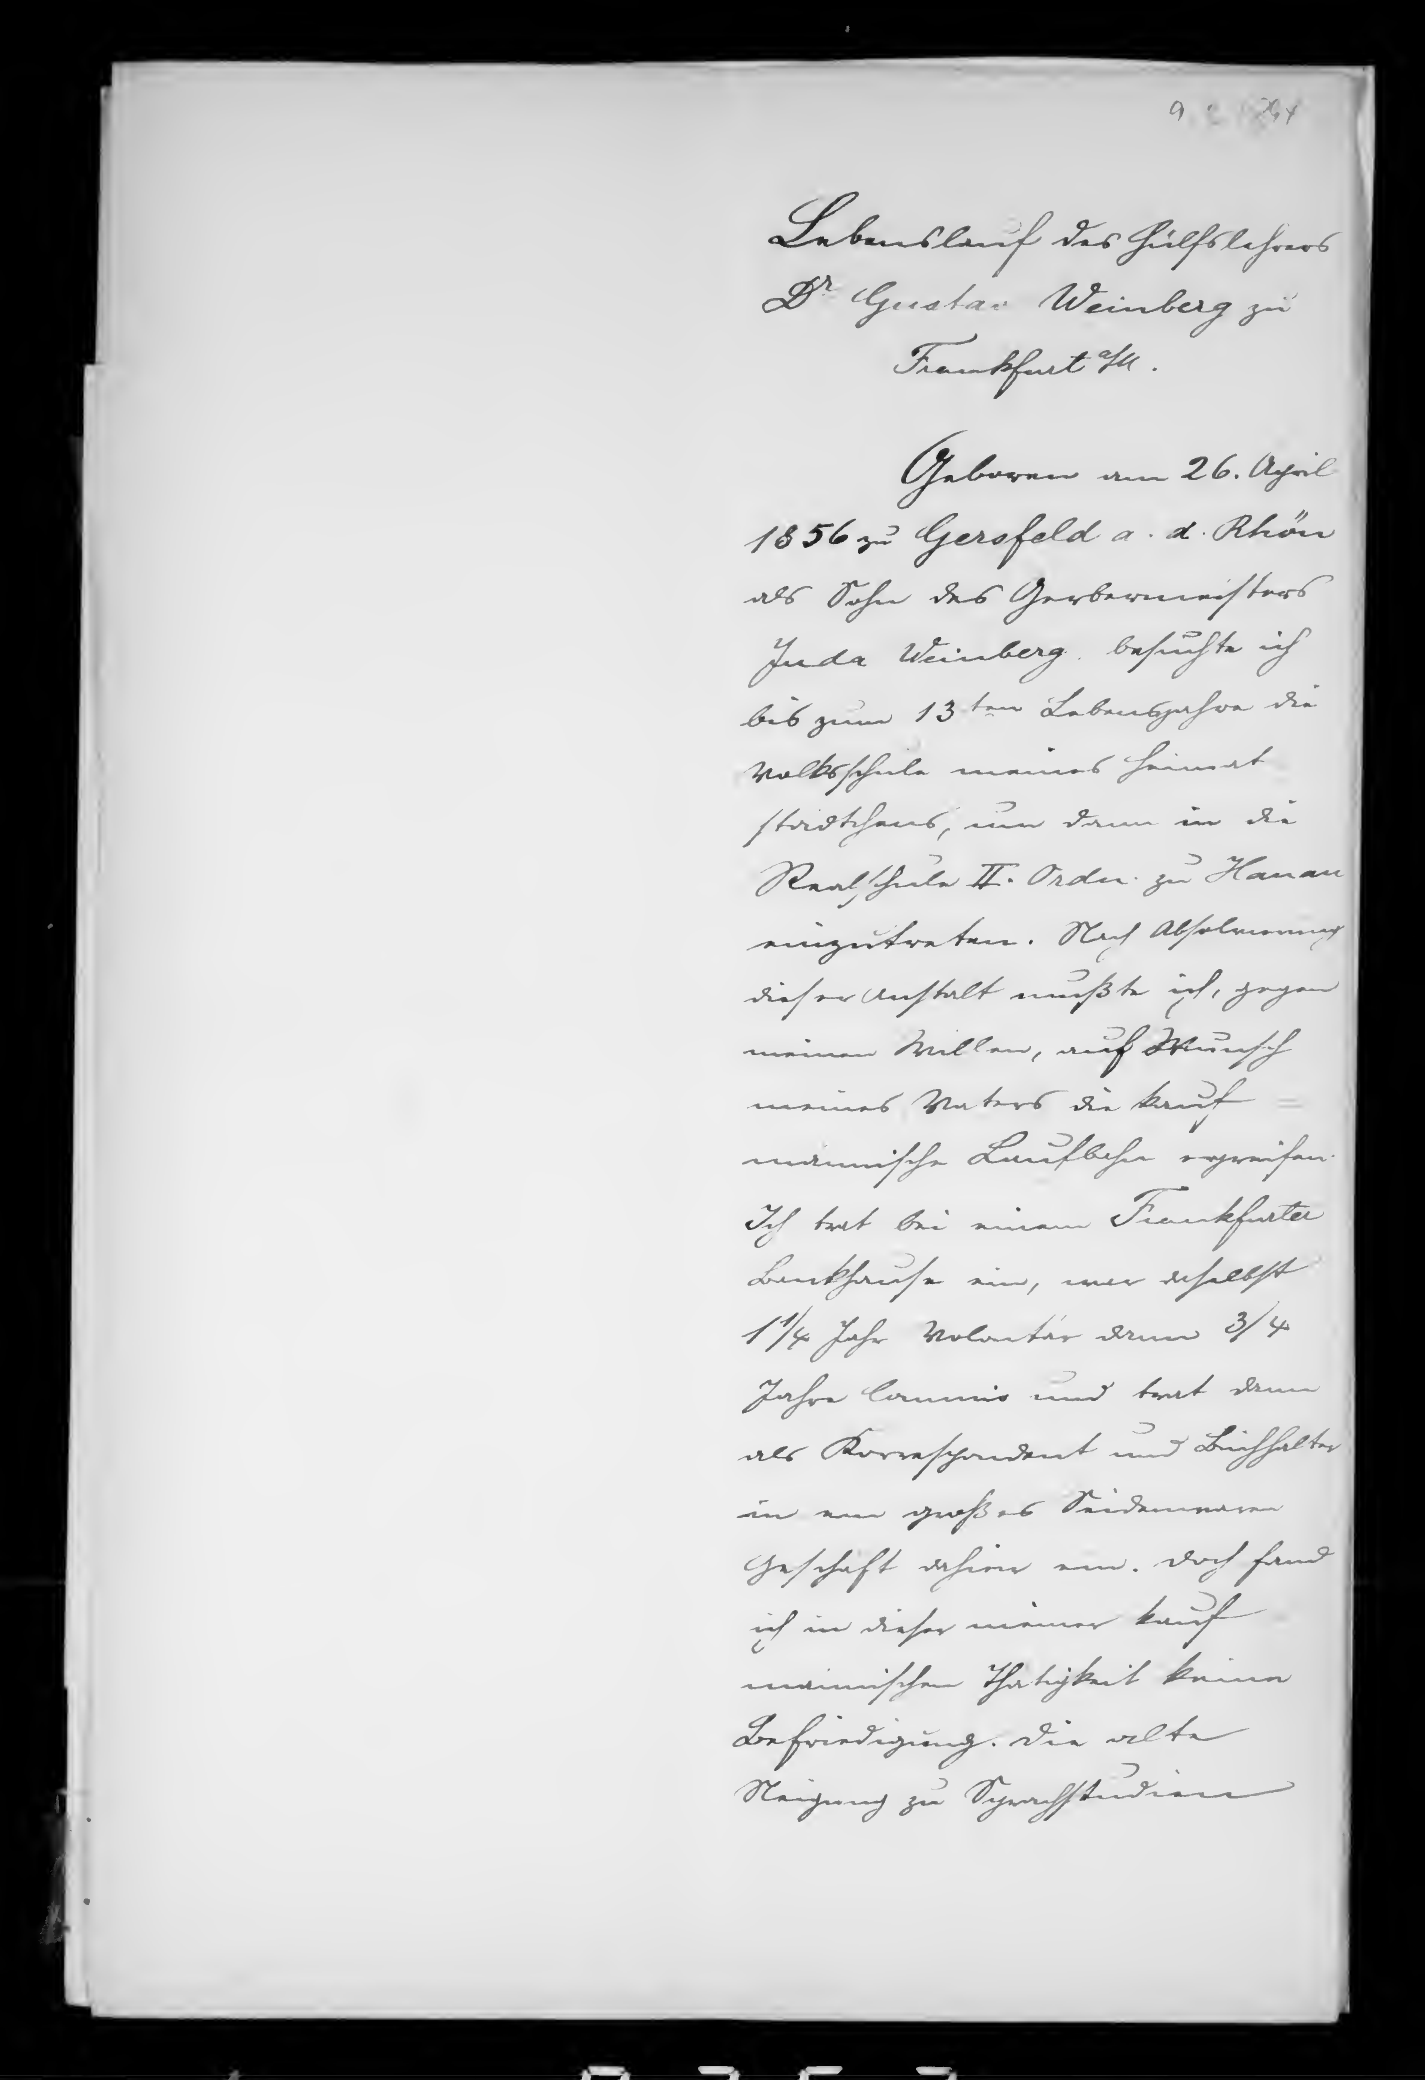 Lebenslauf des Hülfslehrers
Dr Gustav Weinberg zu
Frankfurt a/M.
Geboren am 26. April
1856 zu Gersfeld a. d. Rhön
als Sohn des Gerbermeisters
Juda Weinberg besuchte ich
bis zum 13ten Lebensjahre die
Volksschule meines Heimat
städtchens, um dann in die
Realschule II. Ordn. zu Hanau
einzutreten. Nach Absolvierung
dieser Anstalt mußte ich, gegen
meinen Willen, auf Wunsch
meines Vaters die kauf
männische Laufbahn ergreifen.
Ich trat bei einem Frankfurter
Bankhause ein, war daselbst
1 1/4 Jahr Volontär dann 3/4
Jahre Commis und trat dann
als Korrespondent und Buchhalter
in ein großes Seidenwaren
Geschäft dahier ein. Doch fand
ich in dieser meiner kauf
männischen Thätigkeit keine
Befriedigung. Die alte
Neigung zu Sprachstudien